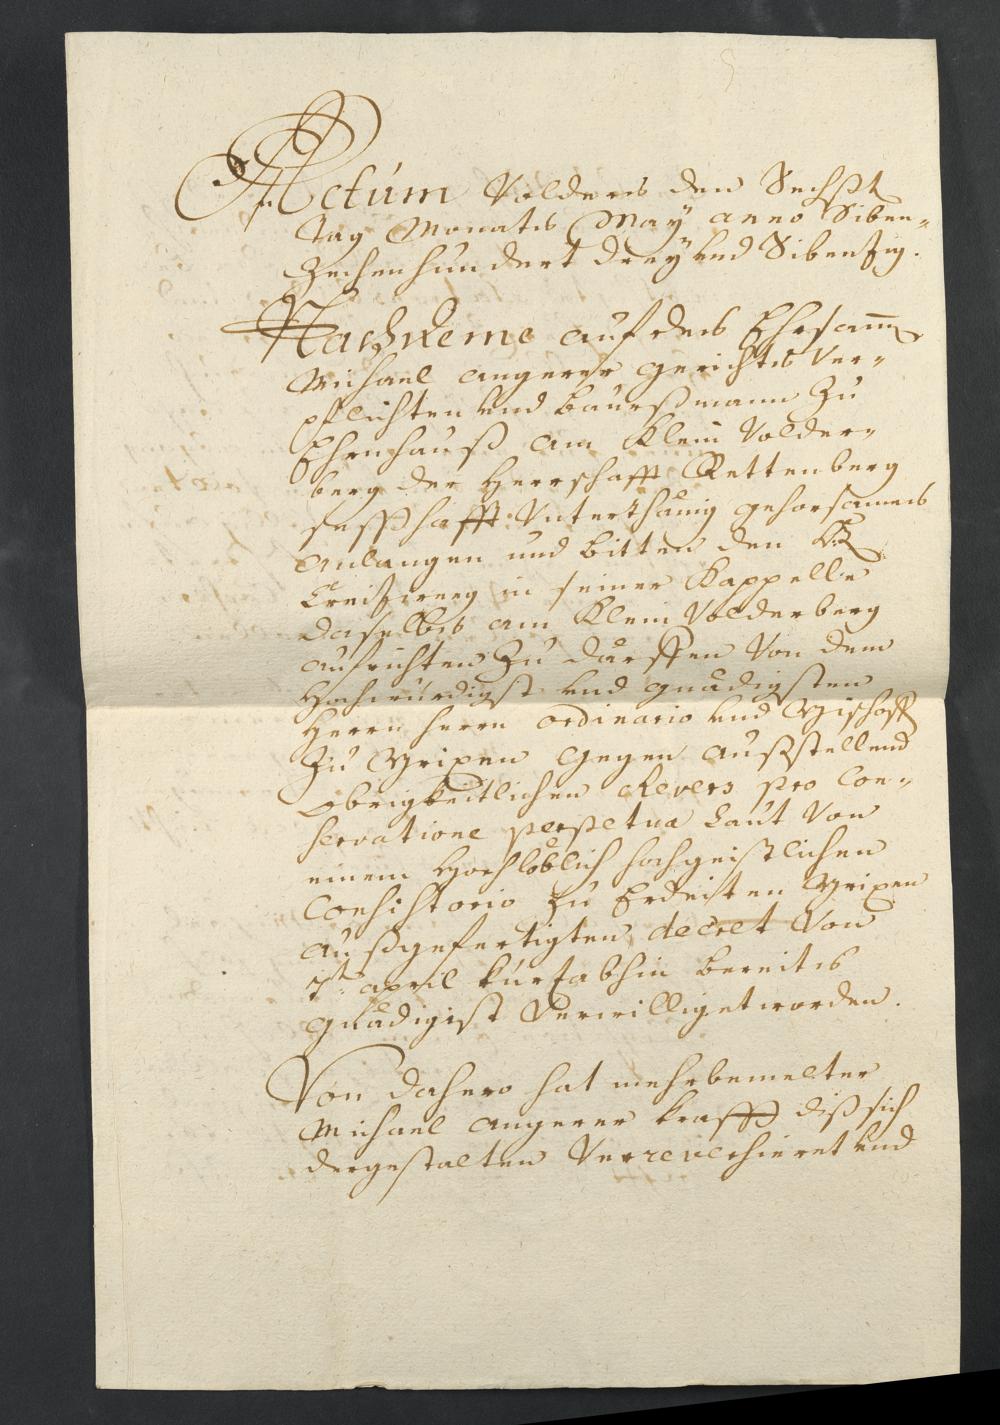 Actum Volders den Sechst
Tag Monats May anno Siben-
Zechenhundert drey und Sibenzig.
Nachdeme auf des Ehrsamm
Michael angerer gerichts Ver-
pflichten und baursmann Zu
Ehrnhauß am Klein Volder-
berg der Herrschafft Rettenberg
sesshafft Unterthänig gehorsames
anlangen und bitten den
Creizweeg in seiner Kappelle
daselbs am Klein Volderberg
aufrichten Zu därffen Von dem
Hochwürdigst und gnädigsten
Herrn Herrn ordinario und Bischoff
Zu Brixen gegen außstellend
obrigkeitlichen Revers pro Con-
servatione perpetua Laut Von
einem Hochlöblich hochgeistlichen
Consistorio zu Erdeiten Brixen
außgefertigten decret Von
7t: april kurzabhin bereits
gnädigist Verwilliget worden.
Von dahero hat mehrbemelter
Michael angerer krafft diß sich
dergestalten Verreversieret und